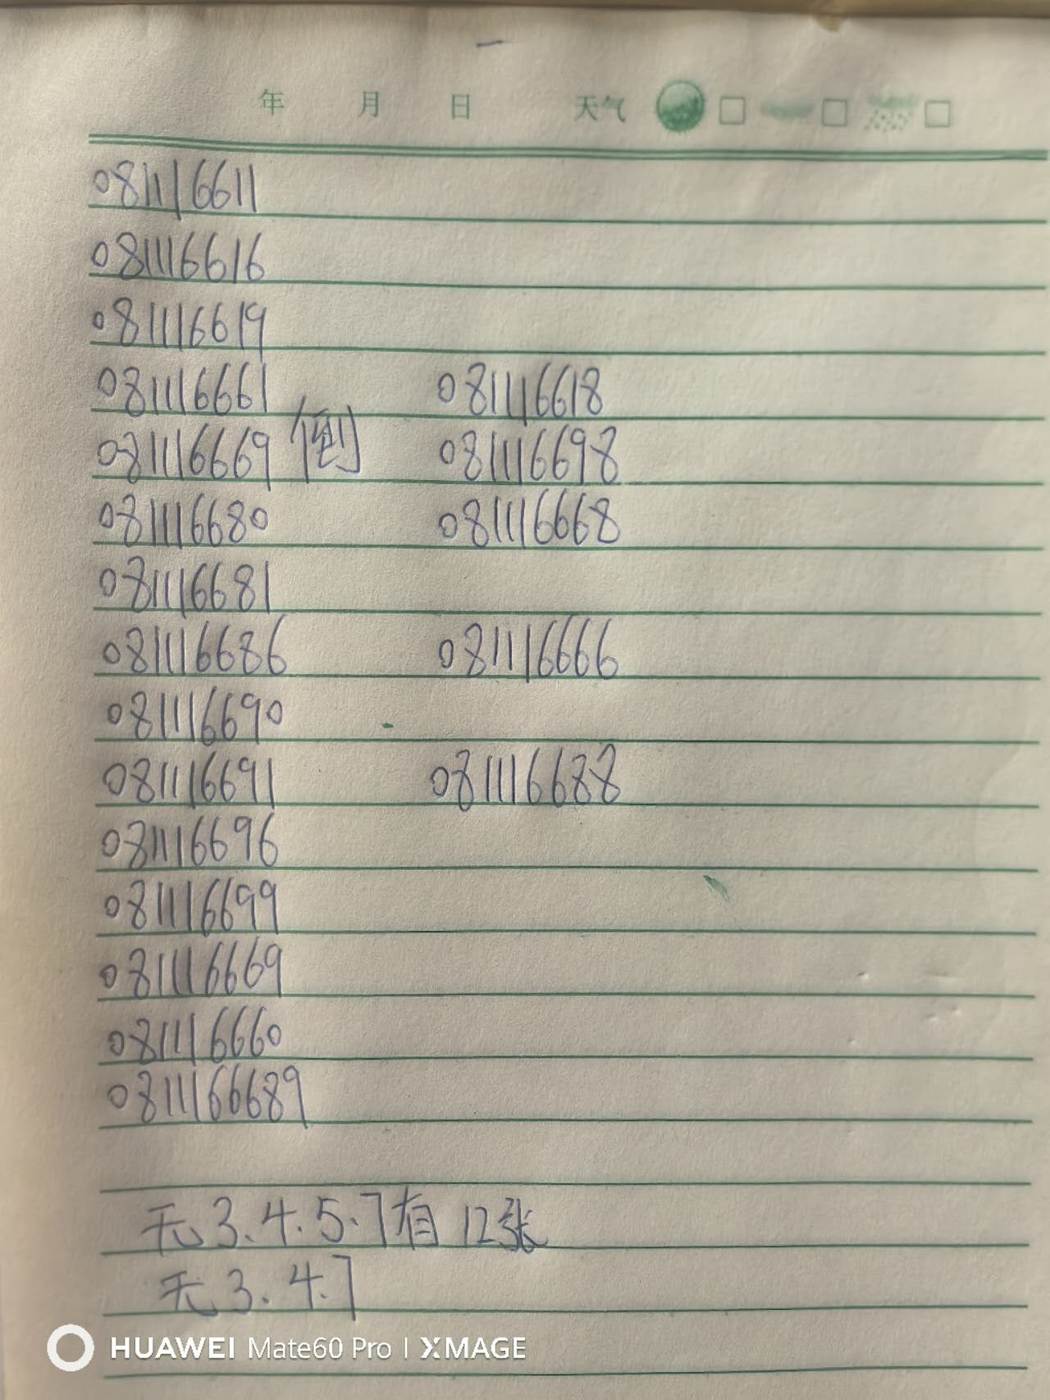 年 月 日 天气
081116611
081116616
081116619
081116661 081116618
081116669 倒 081116698
081116680 081116668
081116681
081116686 081116666
081116690
081116691 081116688
081116696
081116699
081116669
081116660
081116689
无3.4.5.7有12张
无3.4.7
HUAWEI Mate60 Pro | XMAGE